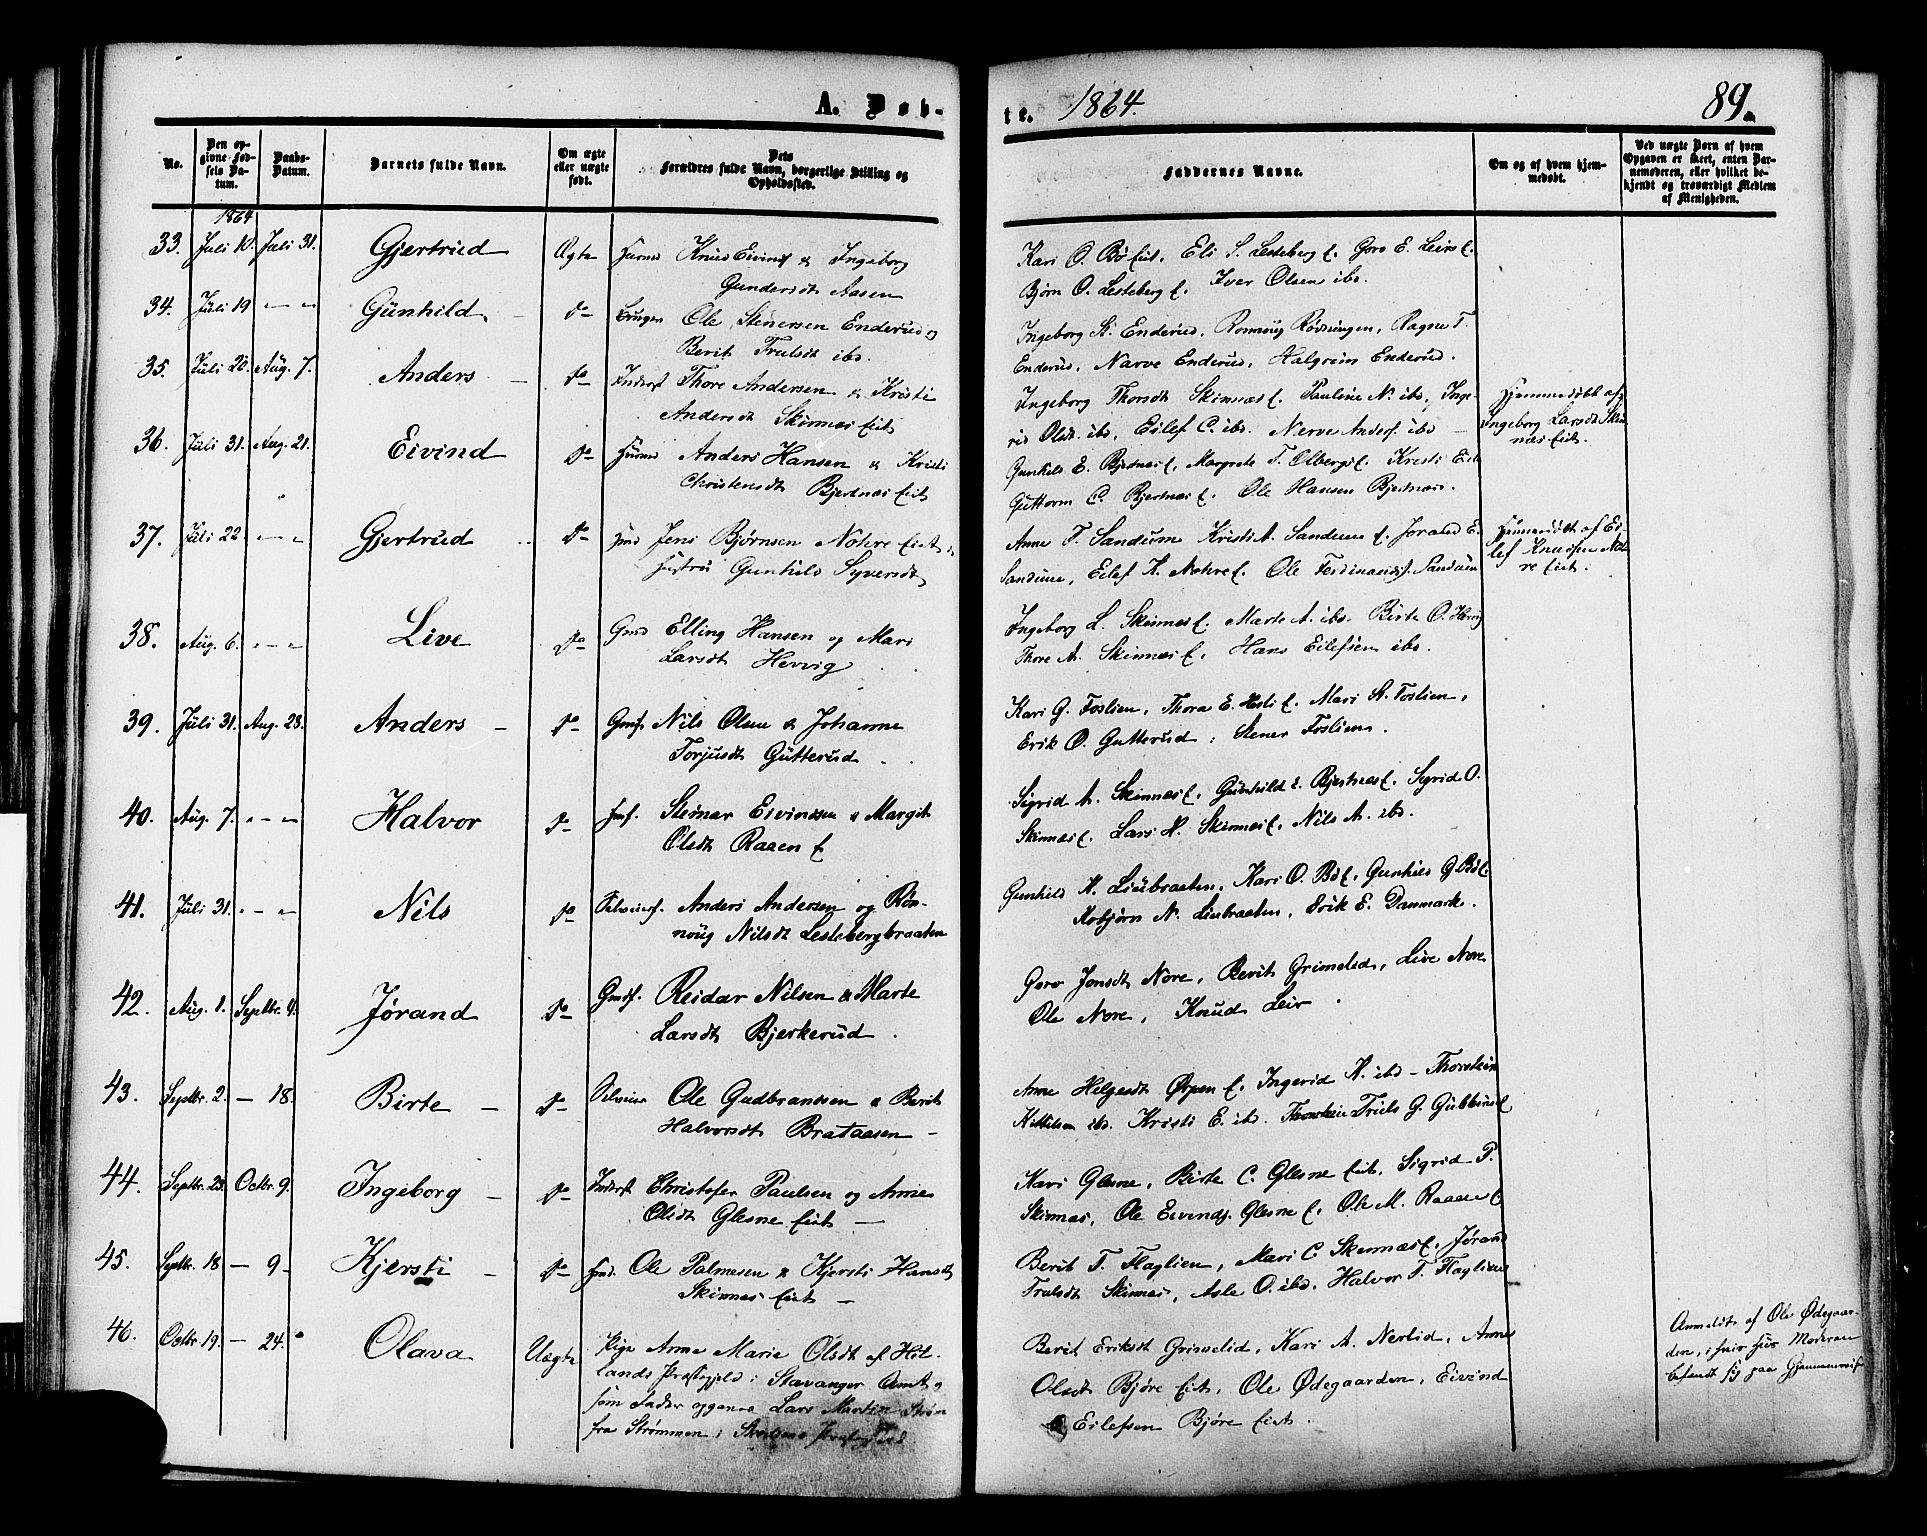 A. Døb-
te. 1864. 89.
No.
Den opgivne Fødsels Datum.
Daabs-Datum.
Barnets fulde Navn.
Om ægte eller uægte født.
Dets Forældres fulde Navn, borgerlige Stilling og Opholdssted.
Faddernes Navne.
Om og af hvem hjemmedøbt.
Ved uægte Børn af hvem Opgaven er skeet, enten Barnemoderen, eller hvilket bekjendt og troværdigt Medlem af Menigheden.
1864
33. Juli 10. Juli 31. Gjertrud Ægte Knud Eivinds & Ingeborg
Gundersdt Aasen
Kari O. Bø Eiet, Eli S. Lesteberg E. Goro E. Leirs E.
Bjørn O. Lesteberg E. Iver Olsen ibd.
34. Juli 19 — — Gunhild do Ole Stenersen Enderud og
Berit Trulsdt ibd.
Ingeborg St. Enderud, Rønnoug Røvsningen, Ragne T.
Enderud, Narve Enderud, Halgrim Enderud.
35. Juli 20. Aug. 7. Anders do Inderst Thore Andersen & Kristi
Andersdt Skinnæs Eiet
Ingeborg Thorsdt Skinnæs E. Pauline N. ibd, Inge-
rid Olsdt. ibd, Eilef C. ibd. Narve Anders. ibd
Hjemmedøbt af
Ingeborg Larsdt Skin
næs Eiet.
36. Juli 31. Aug. 21. Eivind do Anders Hansen & Kristi
Christensdt Bjertnæs Eiet
Gunhild E. Bjertnæs E, Margrete T. Olbergs E. Kristi Eil
Guttorm C. Bjertnæs E. Ole Hansen Bjertnæs.
37. Juli 22 — — Gjertrud do Jens Bjørnsen Nohre Eiet &
Hustru Gunhild Syversdt
Anne T. Sandum Kristi A. Sandum E. Jørand E.
Sandum, Eilef K. Nohre E. Ole Ferdinands. Sandum
Hjemmedøbt af Ei-
lef Knudsen Noh
re Eiet.
38. Aug. 6. — — Live do Gmd Elling Hansen og Mari
Larsdt Hervig
Ingeborg L. Skinnæs E. Marte A. ibd. Birte O. Hervig
Thore A. Skinnæs E, Hans Eilefsen ibd.
39. Juli 31. Aug. 28. Anders — do Gmd. Nils Olsen & Johanne
Torjusdt Gutterud
Kari G. Foslien, Thora E. Hesli E. Mari St. Foslien,
Erik O. Gutterud, Stener Foslien.
40. Aug. 7. — — Halvor do Steinar Eivindsen & Margit
Olsdt Raaen E
Sigrid A. Skinnæs E. Gunhild E. Bjertnæs E. Sigrid O.
Skinnæs E. Lars H. Skinnæs E, Nils A. ibd.
41. Juli 31. — — Nils do Selveier. Anders Andersen og Røn-
noug Nilsdt Lestebergbraaten
Gunhild N. Liubraaten, Kari O. Bø E. Gunhild G Bø E.
Asbjørn N. Liubraaten, Erik E. Danmark.
42. Aug. 1. Septbr. 4. Jørand do Reidar Nilsen & Marte
Larsdt Bjerkerud.
Goro Jonsdt Nore, Berit Grimelid, Live Nore
Ole Nore, Knud Leir.
43. Septbr. 2. — 18. Birte — do Selveier Ole Gudbransen & Berit
Halvorsdt Brataasen —
Anne Helgesdt Ørpen E. Ingerid K. ibd — Thorstein
Kittilsen ibd. Kristi E. ibd. Thorstein Truls G. Gubberud E
44. Septbr. 23. Octbr. 9. Ingeborg — do Inderst Christofer Paulsen og Anne
Olsdt Glesne Eiet —
Kari Glesne, Birte C. Glesne Eiet. Sigrid P.
Skinnæs, Ole Eivinds. Glesne E. Ole M. Raaen E
45. Septbr. 18 — 9 — Kjersti — do Ole Palmesen & Kjersti Hansdt
Skinnæs Eiet —
Berit T. Flaglien, Mari C. Skinnæs E. Jørand
Trulsdt Skinnæs, Asle O. ibd. Halvor T. Flaglien
46. Octbr. 19. — 24. Olava Uægte Pige Anne Marie Olsdt af Het-
lands Præstegjeld i Stavanger Amt og
som Fader opgaves Lars Martin Strøm
fra Strømmen i
Berit Eriksdt Grimelid, Kari A. Nerlid, Anne
Olsdt Bjøre Eiet, Ole Ødegaarden, Eivind
Eilefsen Bjøre Eiet.
Anmeldt af Ole Ødegaar-
den, i hvis Huus Moderen
befandt sig paa Gjennemreise